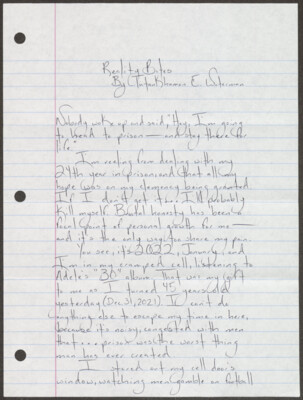 Reality Bites
By Tutankhamun E. Waterman
Nobody woke up and said, "Hey, I'm going
to head to prison — and stay there for
life."
I'm reeling from dealing with my
24th year in prison, and that all my
hope was on my clemency being granted.
If I don't get it... I'll probably
kill myself. Brutal honesty has been a
focal point of personal growth for me —
and it's the only way to share my pain.
You see, it's 2022, January, and
I'm in my cramped cell, listening to
Adele's "30" album. That was my gift
to me as I turned 45 years old
yesterday (Dec. 31, 2021). I can't do
anything else to escape my time in here,
because it's noisy, congested with men
that ... prison was the worst thing
man has ever created.
I stared out my cell door's
window, watching men gamble on football